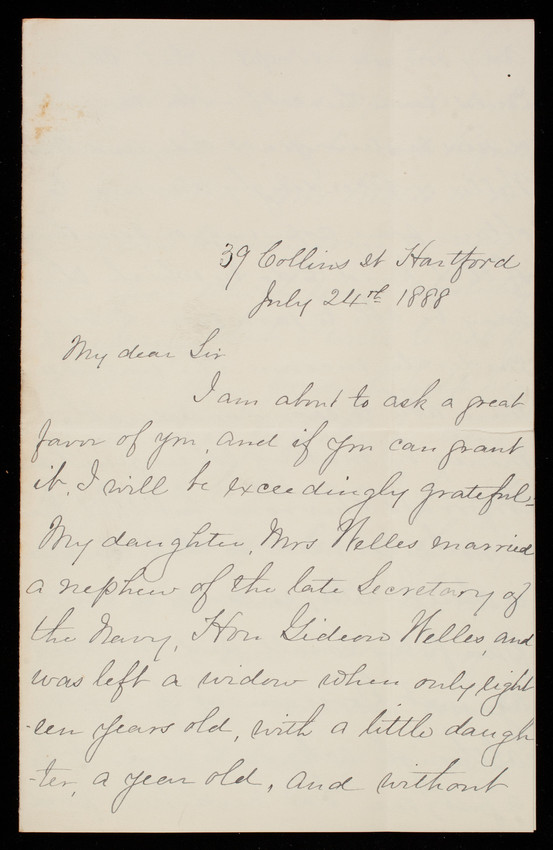 39 Collins St Hartford
July 24th 1888
My dear Sir
I am about to ask a great
favor of you, and if you can grant
it, I will be exceedingly grateful-
My daughter, Mrs Welles married
a nephew of the late Secretary of
the Navy, Hon Gideon Welles, and
was left a widow when only eight
-een years old, with a little daugh
-ter, a year old, and without